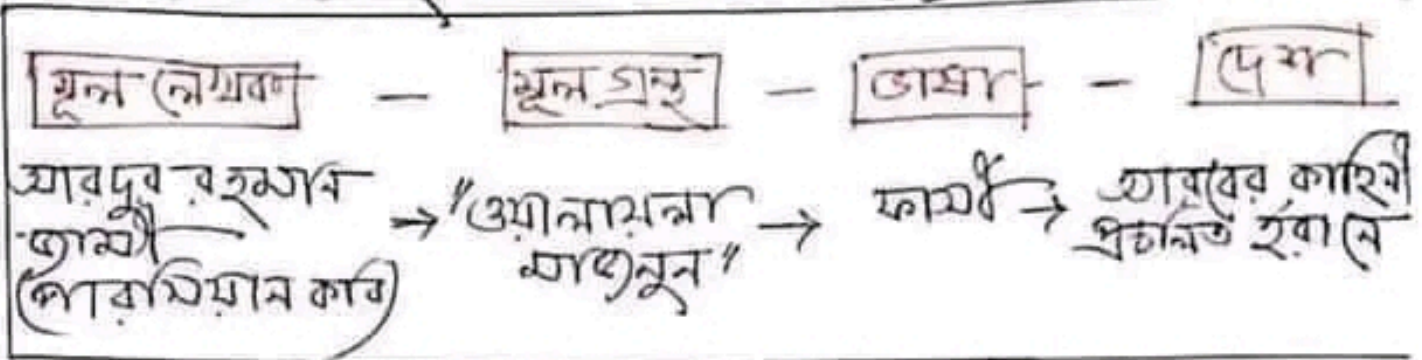 মূল লেখক — মূল গ্রন্থ — ভাষা — দেশ
আবদুর রহমান জামী (পারসিয়ান কবি) → "ওয়ালায়লা মাজনুন" → ফার্সী → আরবের কাহিনী প্রচলিত ইরানে